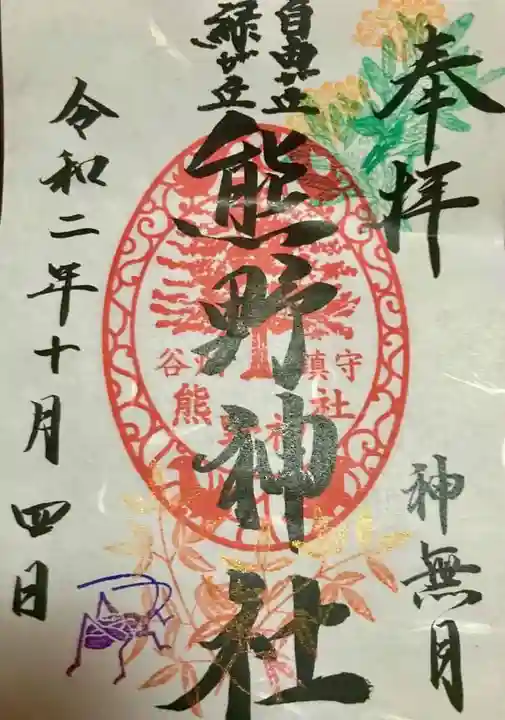 奉拝
神無月
自由が丘
緑が丘
熊野神社
谷 鎮守
熊野神社
令和二年十月四日